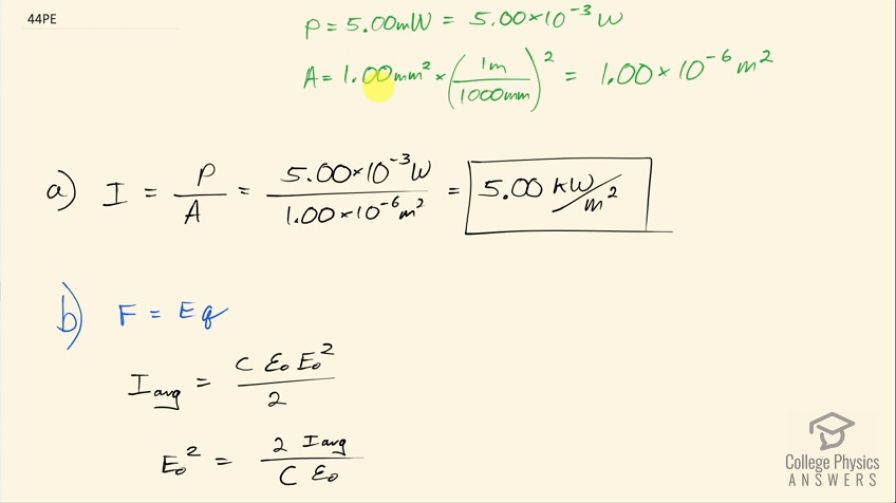 44PE
P = 5.00mW = 5.00×10⁻³ W
A = 1.00mm² × (1m/1000mm)² = 1.00×10⁻⁶ m²
a) I = P/A = 5.00×10⁻³W/1.00×10⁻⁶m² = 5.00 kW/m²
b) F = Eq
I_avg = C ε₀E₀²/2
E₀² = 2 I_avg/C ε₀
College Physics
ANSWERS